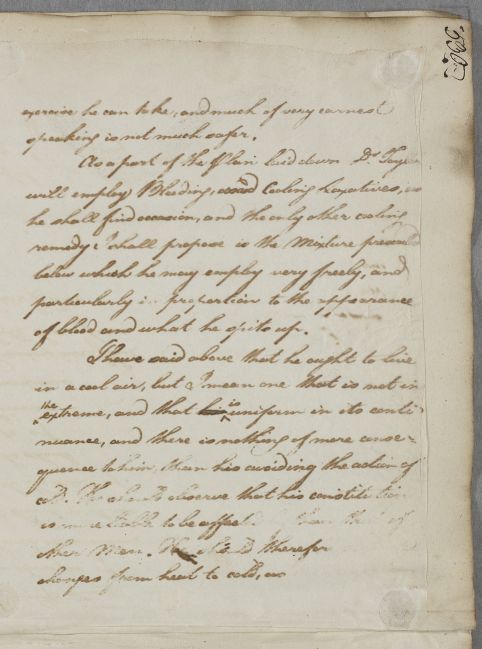 exercise he can take, and much of very earnest
speaking is not much safer.
As a part of the Plan laid down Dr
will employ Bleeding, and Cooling Laxatives, as
he shall find occasion, and the only other cooling
remedy I shall propose is the Mixture
below which he may employ very freely, and
particularly in proportion to the appearance
of blood and what he spits up.
I have said above that he ought to live
in a cool air, but I mean one that is not in
the extreme, and that is uniform in its conti-
nuance, and there is nothing of more conse-
quence to him, than his avoiding the action of
cold. He should observe that his constitution
is more liable to be affected than that of
other Men. He should therefor
changes from heat to cold, as